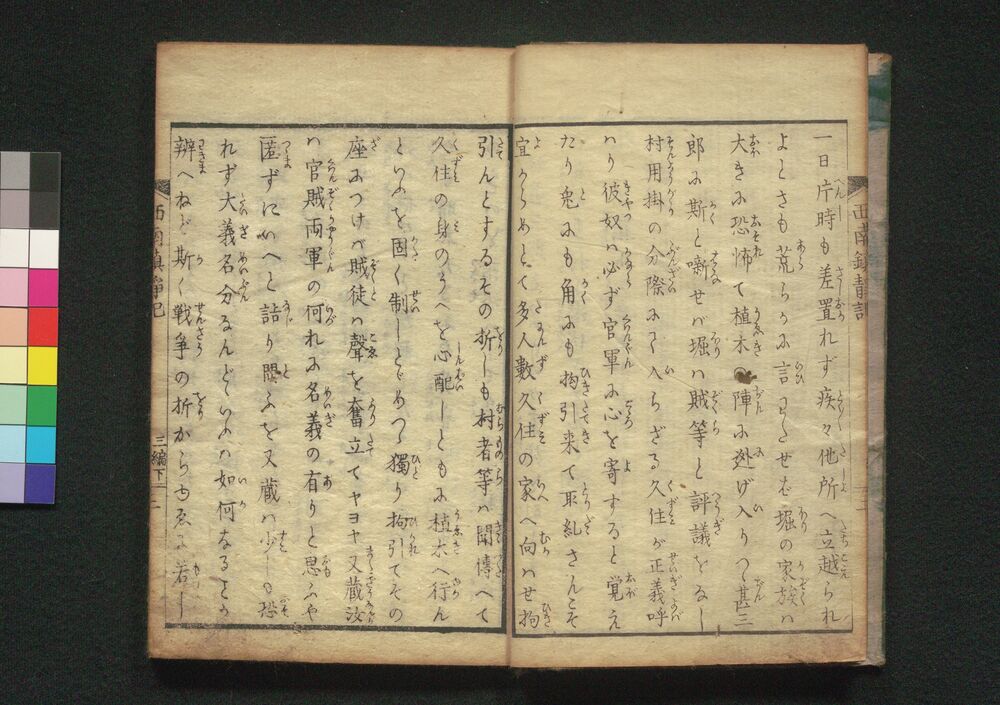 一日片時も差置れず疾々他所へ立越られ
よとさも荒らかに言のゝせむ堀の家族ハ
大きに恐怖て植木の陣に逃げ入りつゝ甚三
郎に斯と噺せバ堀ハ賊等と評議をなし
村用掛の分際にて入らざる久住が正義呼
ハり彼奴ハ必ず官軍に心を寄すると覚え
たり兎にも角にも拘引来て取糺さんこそ
宜からめとて多人數久住の家へ向ハせ拘
引んとするその折しも村者等ハ聞傳へて
久住の身のうへを心配しともに植木へ行ん
といふを固く制しとゞめつゝ獨り拘引てその
座につけバ賊徒ハ聲を奮立てヤヨヤ又蔵汝
ハ官賊両軍の何れに名義の有りと思ふや
匿ずにいへと詰り問ふを又蔵ハ少しも恐
れず大義名分るんどいふハ如何なることか
辨へねど斯く戦争の折からゆゑに若し
西南鎮静記
西南鎮静記
三編下